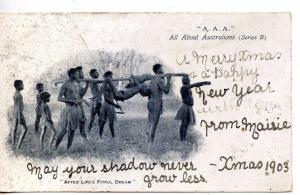 "A.A.A."
All About Australians (Series B)
A Merry Xmas
& a Happy
New Year
from Maisie
Xmas 1903
May your shadow never
grow less.
"AFTER LIFE'S FITFUL DREAM"